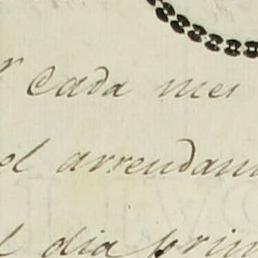 cada mes
el arrendam
l dia prim